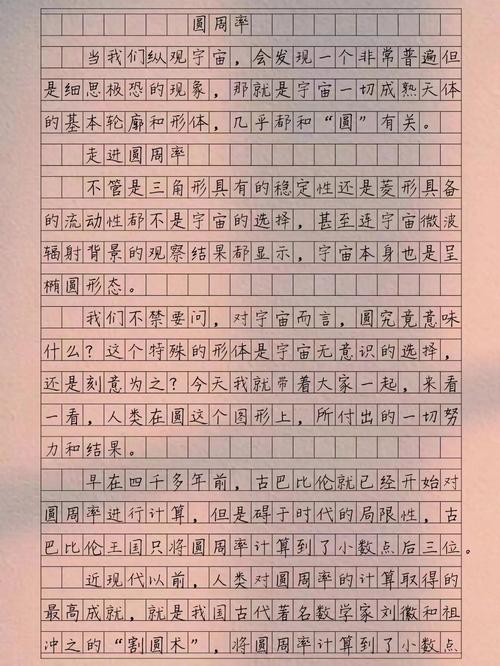 圆周率
当我们纵观宇宙，会发现一个非常普遍但
是细思极恐的现象，那就是宇宙一切成熟天体
的基本轮廓和形体，几乎都和“圆”有关。
走进圆周率
不管是三角形具有的稳定性还是菱形具备
的流动性都不是宇宙的选择，甚至连宇宙微波
辐射背景的观察结果都显示，宇宙本身也是呈
椭圆形态。
我们不禁要问，对宇宙而言，圆究竟意味
什么？这个特殊的形体是宇宙无意识的选择，
还是刻意为之？今天我就带着大家一起，来看
一看，人类在圆这个图形上，所付出的一切努
力和结果。
早在四千多年前，古巴比伦就已经开始对
圆周率进行计算，但是碍于时代的局限性，古
巴比伦王国只将圆周率计算到了小数点后三位。
近现代以前，人类对圆周率的计算取得的
最高成就，就是我国古代著名数学家刘徽和祖
冲之的“割圆术”，将圆周率计算到了小数点